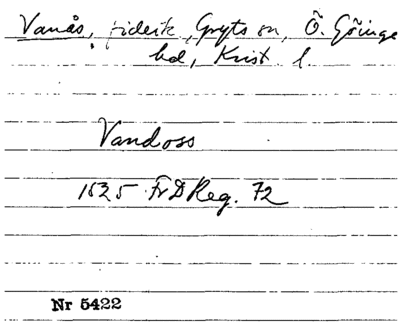 Vanås, fideik, Gryts sn, Ö. Göinge
hd, Krist l.
Vandoss
1535 Fr D Reg. 72
Nr 5422